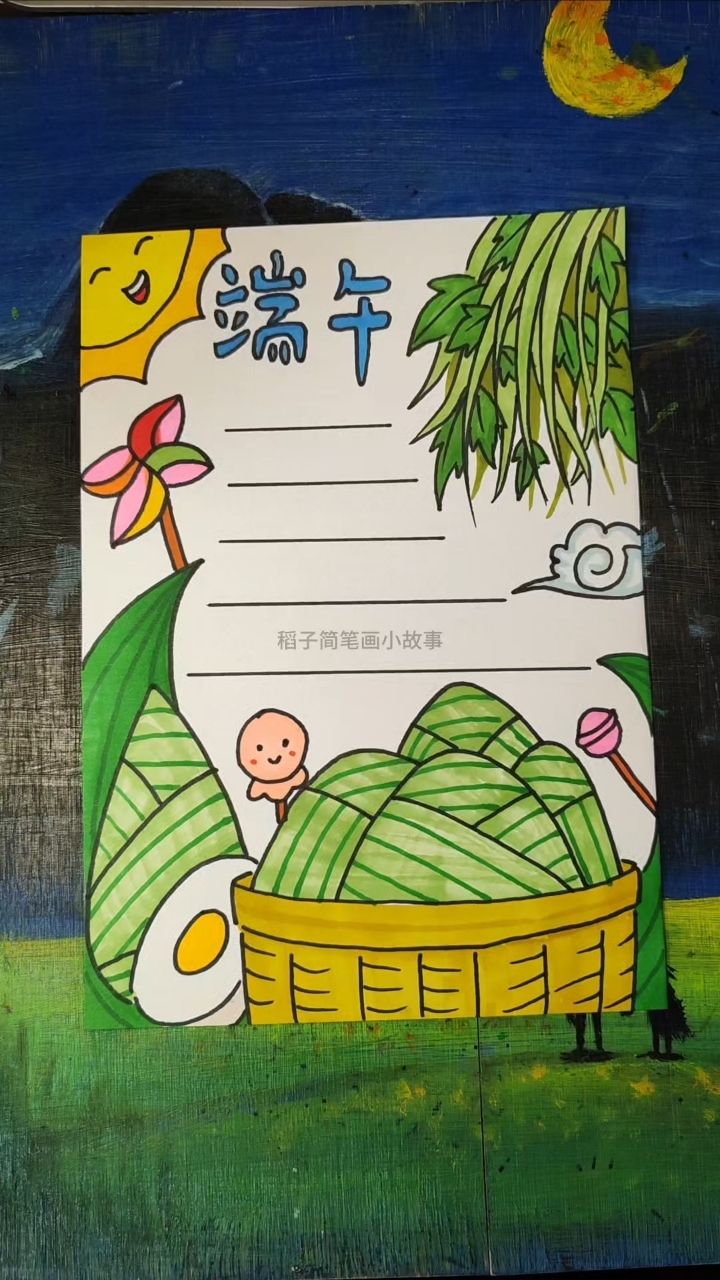 端午
稻子简笔画小故事